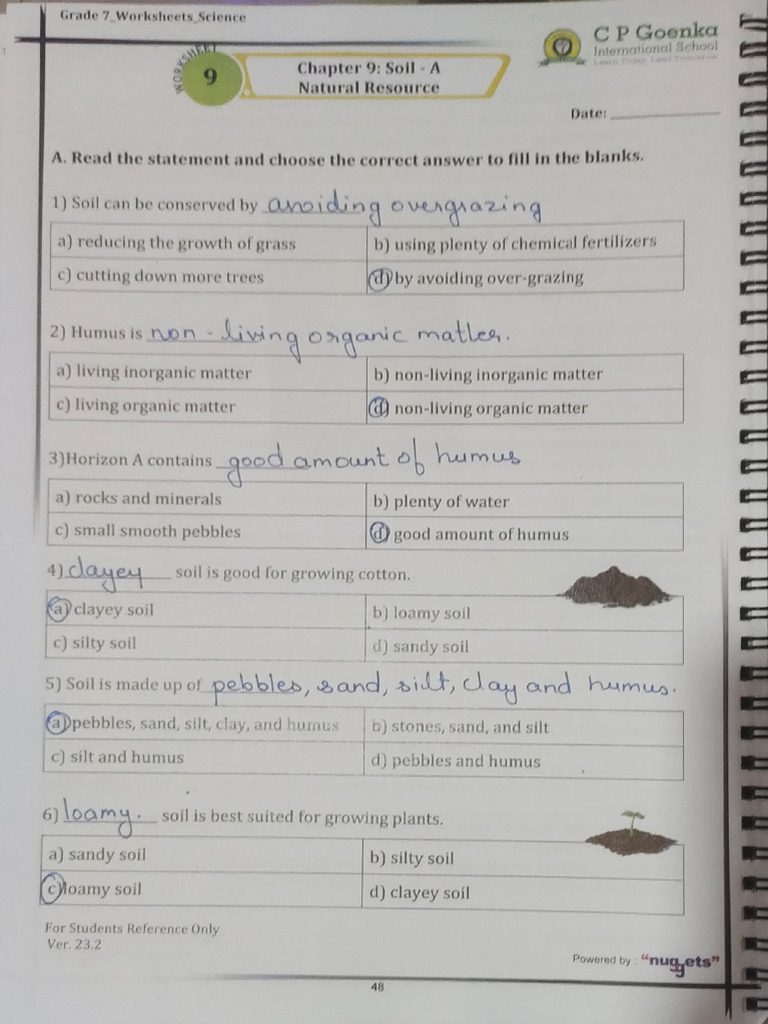 Grade 7_Worksheets_Science
C P Goenka
International School
Learn Today, Lead Tomorrow
WORKSHEET
9
Chapter 9: Soil - A
Natural Resource
Date:
A. Read the statement and choose the correct answer to fill in the blanks.
1) Soil can be conserved by avoiding overgrazing
a) reducing the growth of grass b) using plenty of chemical fertilizers
c) cutting down more trees d) by avoiding over-grazing
2) Humus is non-living organic matter.
a) living inorganic matter b) non-living inorganic matter
c) living organic matter d) non-living organic matter
3)Horizon A contains good amount of humus
a) rocks and minerals b) plenty of water
c) small smooth pebbles d) good amount of humus
4) clayey soil is good for growing cotton.
a) clayey soil b) loamy soil
c) silty soil d) sandy soil
5) Soil is made up of pebbles, sand, silt, clay and humus.
a) pebbles, sand, silt, clay, and humus b) stones, sand, and silt
c) silt and humus d) pebbles and humus
6) loamy. soil is best suited for growing plants.
a) sandy soil b) silty soil
c) loamy soil d) clayey soil
For Students Reference Only
Ver. 23.2
Powered by : "nuggets"
48